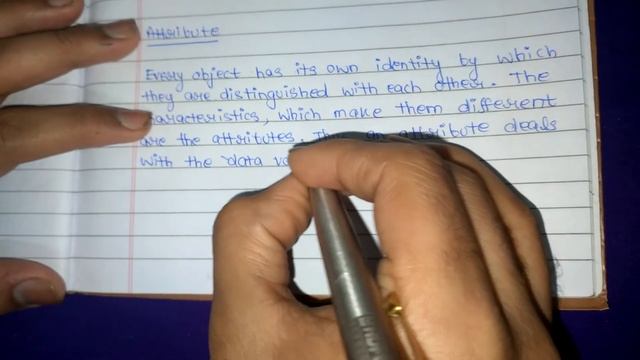 Attribute
Every object has its own identity by which
they are distinguished with each other. The
characteristics, which make them different
are the attritutes. an attribute deals
with the data